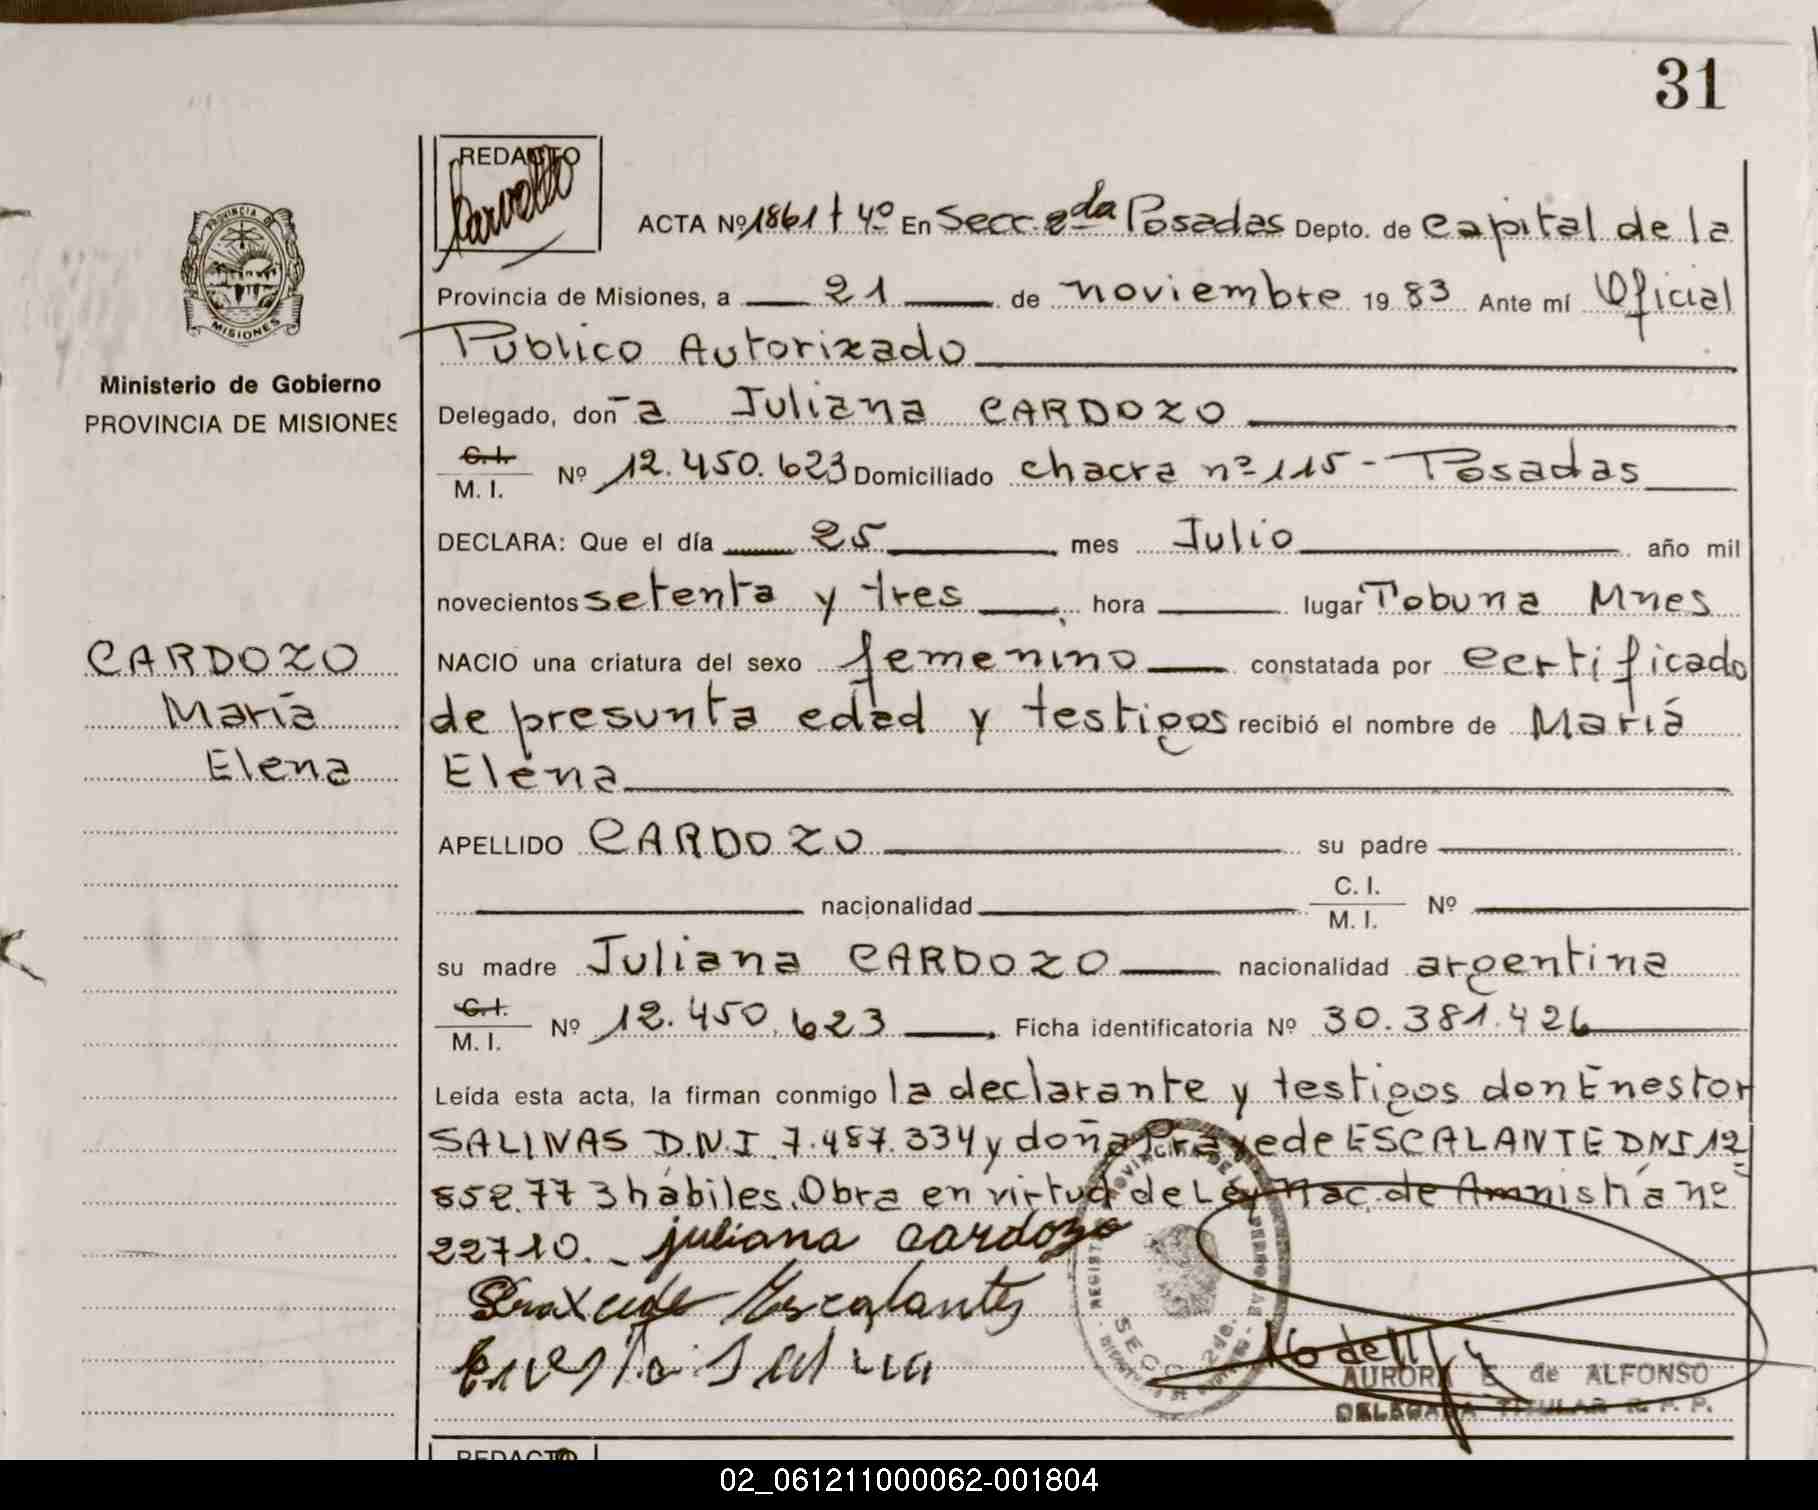 31
REDACTO
ACTA Nº 1861 t 4º En Secc. 2da Posadas Depto. de Capital de la
PROVINCIA DE
MISIONES
Provincia de Misiones, a 21 de noviembre 19 83 Ante mí Oficial
Público Autorizado
Ministerio de Gobierno
PROVINCIA DE MISIONES
Delegado, don a Juliana CARDOZO
C. I.
M. I. Nº 12.450.623 Domiciliado chacra nº 115 - Posadas
DECLARA: Que el día 25 mes Julio año mil
novecientos setenta y tres hora lugar Tobuna Mnes
CARDOZO
María
Elena
NACIO una criatura del sexo femenino constatada por certificado
de presunta edad y testigos recibió el nombre de María
Elena
APELLIDO CARDOZO su padre
nacionalidad C. I.
M. I. Nº
su madre Juliana CARDOZO nacionalidad argentina
C. I.
M. I. Nº 12.450.623 Ficha identificatoria Nº 30.381.426
Leída esta acta, la firman conmigo la declarante y testigos don Enestor
SALINAS D.N.I. 7.487.334 y doña ESCALANTE DNI 12
852.773 hábiles. Obra en virtud de Ley Nac. de Amnistía nº
22710.- juliana cardozo
Escalante
SECC. 2da.
AURORA E de ALFONSO
DELEGADA TITULAR R. P. P.
REDACTO
02_061211000062-001804